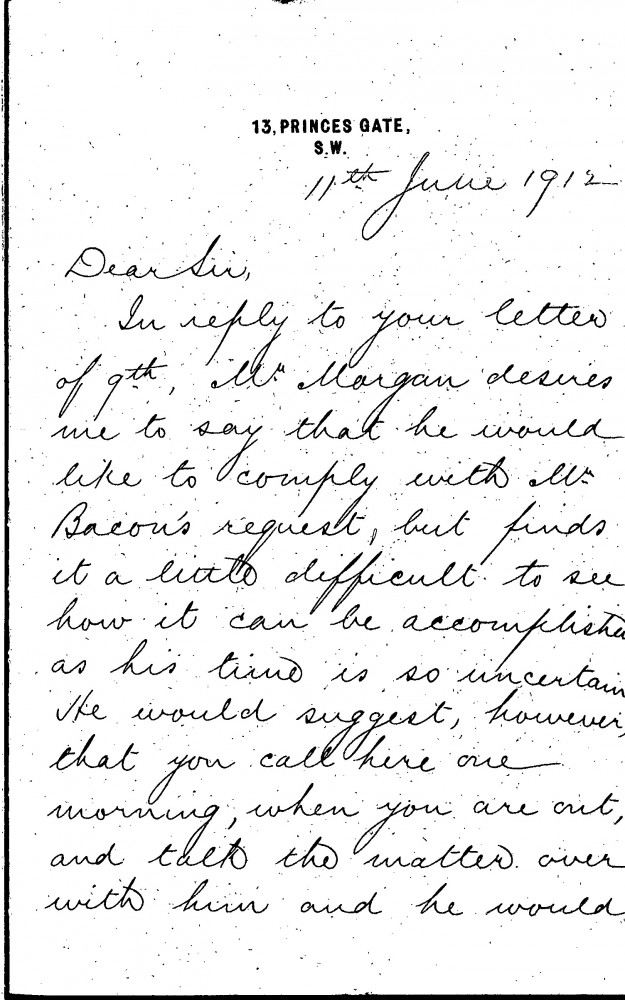 13, PRINCES GATE,
S.W.
11th June 1912
Dear Sir,
In reply to your letter
of 9th, Mr Morgan desires
me to say that he would
like to comply with Mr
Bacon's request, but finds
it a little difficult to see
how it can be accomplished
as his time is so uncertain
He would suggest, however,
that you call here one
morning, when you are out,
and talk the matter over
with him and he would